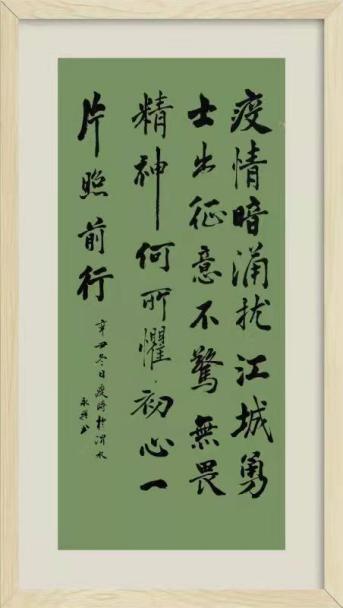 疫情暗涌扰江城勇
士出征意不驚無畏
精神何所懼初心一
片照前行
辛丑冬日疫時於渭水